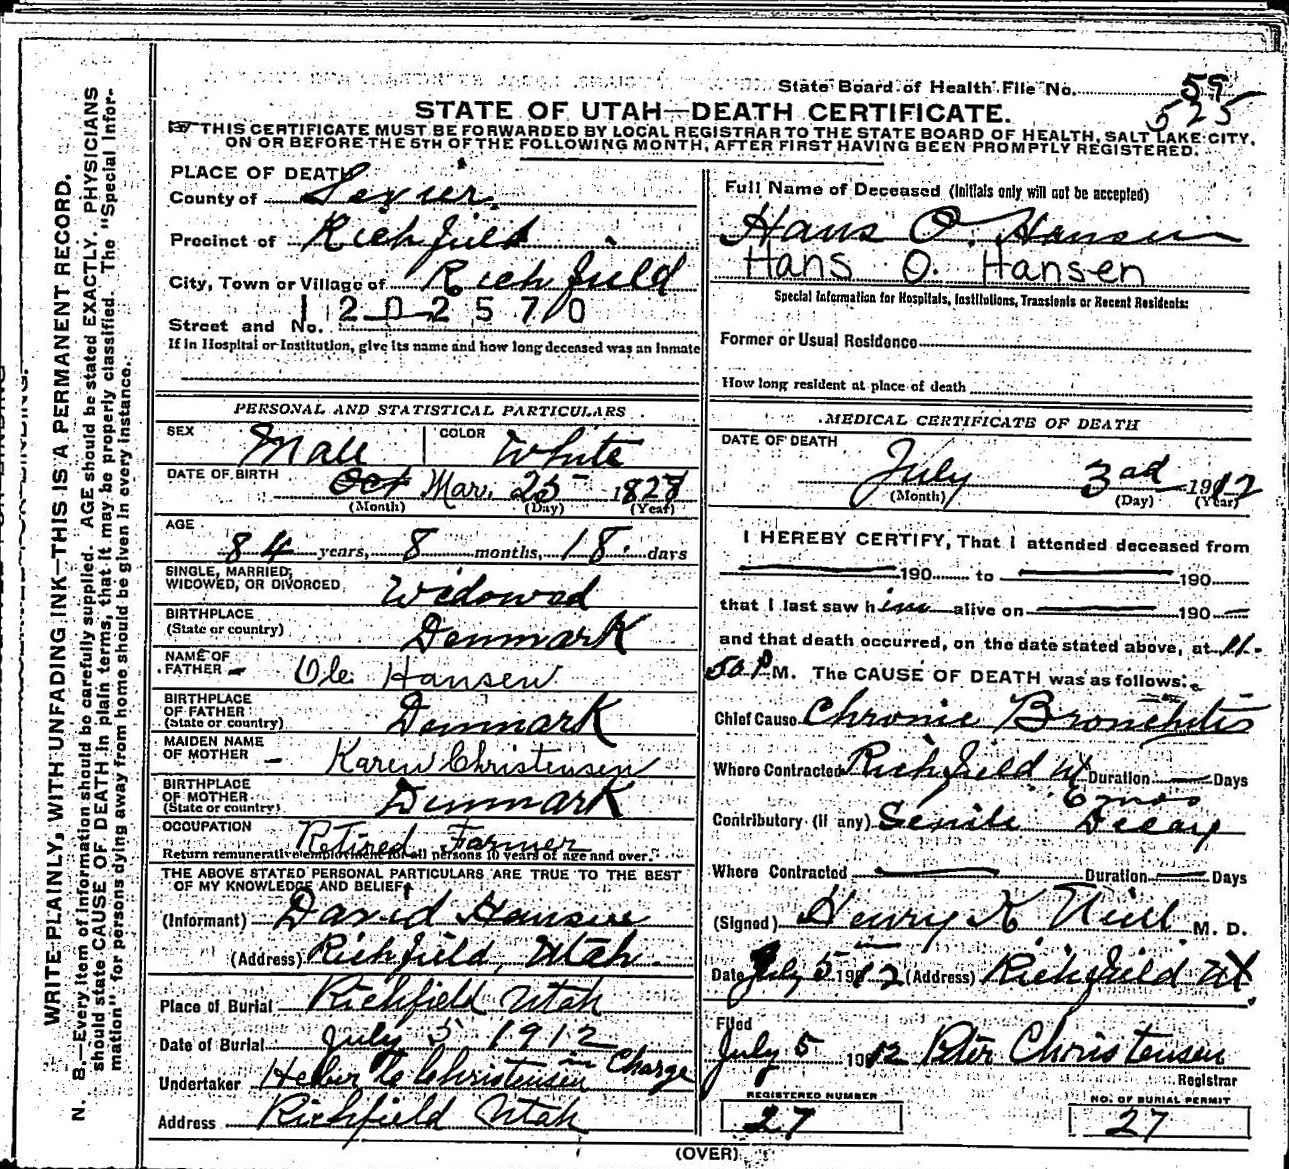 State Board of Health File No. 59
525
STATE OF UTAH—DEATH CERTIFICATE.
THIS CERTIFICATE MUST BE FORWARDED BY LOCAL REGISTRAR TO THE STATE BOARD OF HEALTH, SALT LAKE CITY,
ON OR BEFORE THE 5TH OF THE FOLLOWING MONTH, AFTER FIRST HAVING BEEN PROMPTLY REGISTERED.
PLACE OF DEATH
County of Sevier
Precinct of Richfield
City, Town or Village of Richfield
1202570
Street and No.
If in Hospital or Institution, give its name and how long deceased was an Inmate
Full Name of Deceased (Initials only will not be accepted)
Hans O. Hansen
Hans O. Hansen
Special Information for Hospitals, Institutions, Transients or Recent Residents:
Former or Usual Residence
How long resident at place of death
PERSONAL AND STATISTICAL PARTICULARS
SEX Male COLOR White
DATE OF BIRTH Oct Mar. 25 1828
(Month) (Day) (Year)
AGE
84 years, 8 months, 18 days
SINGLE, MARRIED,
WIDOWED, OR DIVORCED Widowed
BIRTHPLACE
(State or country) Denmark
NAME OF
FATHER Ole Hansen
BIRTHPLACE
OF FATHER
(State or country) Denmark
MAIDEN NAME
OF MOTHER Karen Christensen
BIRTHPLACE
OF MOTHER
(State or country) Denmark
OCCUPATION Retired Farmer
Return remunerative employment for all persons 10 years of age and over.
THE ABOVE STATED PERSONAL PARTICULARS ARE TRUE TO THE BEST
OF MY KNOWLEDGE AND BELIEF
(Informant) David Hansen
(Address) Richfield, Utah.
Place of Burial Richfield Utah
Date of Burial July 5 1912
Undertaker Heber Christensen Charge
Address Richfield Utah
MEDICAL CERTIFICATE OF DEATH
DATE OF DEATH
July 3rd 1912
(Month) (Day) (Year)
I HEREBY CERTIFY, That I attended deceased from
190 to 190
that I last saw him alive on 190
and that death occurred, on the date stated above, at 11.
50 P M. The CAUSE OF DEATH was as follows:
Chief Cause Chronic Bronchitis
Where Contracted Richfield Ut Duration Days
6 mos
Contributory (if any) Senile Decay
Where Contracted Duration Days
(Signed) Henry K Neill M. D.
Date July 5 1912 (Address) Richfield Ut
Filed
July 5 1912 Peter Christensen
Registrar
REGISTERED NUMBER
27
NO. OF BURIAL PERMIT
27
(OVER)
N. B.—Every item of information should be carefully supplied. AGE should be stated EXACTLY. PHYSICIANS
should state CAUSE OF DEATH in plain terms, that it may be properly classified. The "Special Infor-
mation" for persons dying away from home should be given in every instance.
WRITE PLAINLY, WITH UNFADING INK—THIS IS A PERMANENT RECORD.